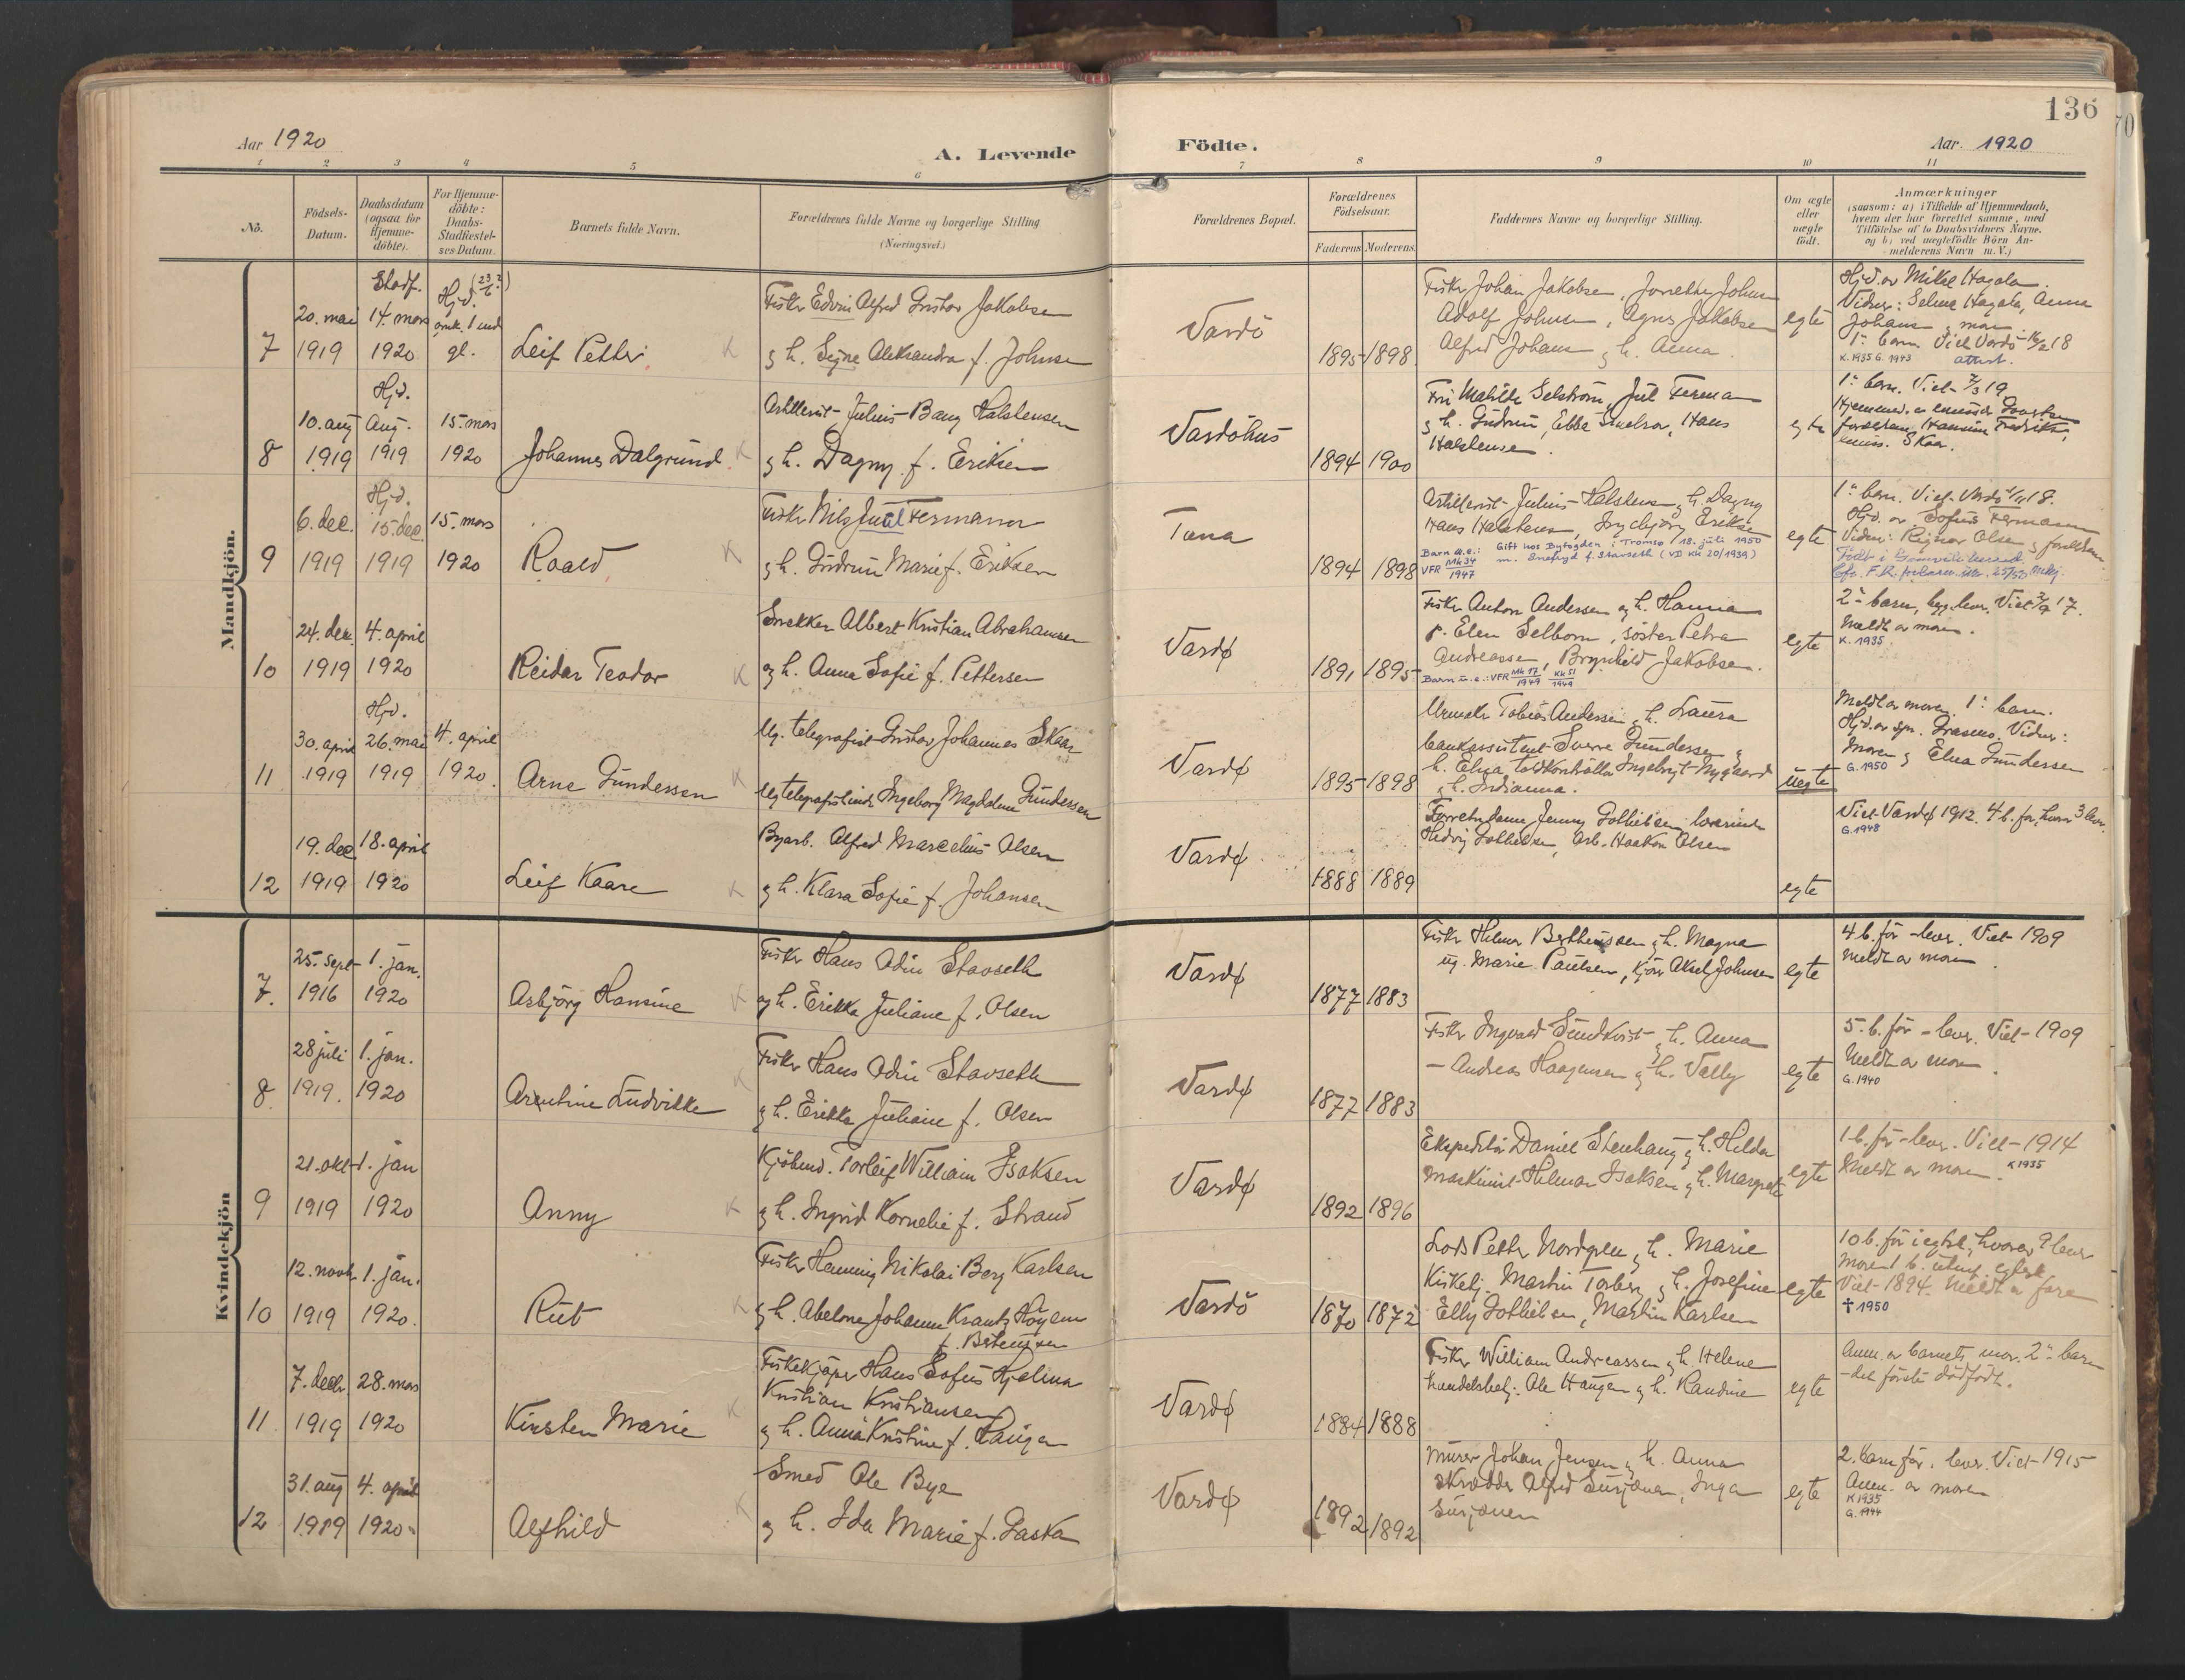 136
Aar 1920
A. Levende
Födte.
Aar. 1920
1 2 3 4 5 6 7 8 9 10 11
No.
Födsels-
Datum.
Daabsdatum
(ogsaa for
Hjemme-
döbte).
For Hjemme-
döbte:
Daabs-
Stadfæstel-
ses Datum.
Barnets fulde Navn.
Forældrenes fulde Navne og borgerlige Stilling
(Næringsvei.)
Forældrenes Bopæl.
Forældrenes
Födselsaar.
Faderens Moderens.
Faddernes Navne og borgerlige Stilling.
Om ægte
eller
uægte
födt.
Anmærkninger
(saasom: a) i Tilfælde af Hjemmedaab,
hvem der har forrettet samme, med
Tilföielse af to Daabsvidners Navne.
og b) ved uægtefödte Börn An-
melderens Navn m. V.)
Mandkjön.
7
20. mai
1919
Stadf.
14. mars
1920
Hjd.
omk. 1 md
gl.
Leif Petter
K
Fisker Edvin Alfred Gustav Jakobsen
og h. Signe Aleksandra f. Johnsen
Vardö
1895 1898
Fisker Johan Jakobsen,
Adolf Johnsen, Agnes Jakobsen
Alfred Johans og h. Anna.
egte
Hjd. av Mikal Hagala.
Vidner: Selma Hagala, Anna
Johans og moren
1' barn. Viet Vardö
K. 1935 G. 1943 attest.
8
10. aug
1919
Hjd.
Aug.
1919
15. mars
1920
Johannes Dalgrund.
K
Artillerist Julius Bang Halstensen
og h. Dagny f. Eriksen
Vardöhus
1894 1900
Matilde Selström, Jul Fermann
og h. Gudrun, Ebba Hans
Halstensen.
egte
1' barn. Viet 2/3 19
Hjemmed.
forældrene,
Skaar.
9
6. dec.
1919
Hjd.
15. dec.
1919
15. mars
1920
Roald
K
Fisker Nils Juul Fermann
og h. Gudrun Marie f. Eriksen
Tana
1894 1898
Artillerist Julius Halstensen og h. Dagny
Hans Halstensen, Ingebjörg Eriksen
Barn u.e.: Gift hos Byfogden i Tromsø 18. juli 1950
VFR Mk 34 1947 m. f. Stavseth (VD KK 20/1939)
egte
1' barn. Viet Vardö
Hjd. av Sofus Fermann
Vidner: Ragnar Olsen og forældrene
Födt i
10
24. dec.
1919
4. april
1920
Reidar Teodor
K
Snekker Albert Kristian Abrahamsen
og h. Anna Sofie f. Pettersen
Vardø
1891 1895
Fisker Anton Andersen og h. Hanna
p. Elen Selborn, söster Petra
Andreassen, Brynhild Jakobsen.
Barn u.e.: VFR Mk 17 1949 KK 51 1949
egte
2' barn, begge lever. Viet 2/9 17.
Meldt av moren.
K. 1935
11
30. april
1919
Hjd.
26. mai
1919
4. april
1920.
Arne Gundersen
K
Ug. telegrafist Gustav Johannes Skaar
Ug telegrafistinde Ingeborg Magdalene Gundersen
Vardø
1895 1898
Urmaker Tobias Andersen og h. Laura
bankassistent Sverre Gundersen og
h. Elna toldkontrollør Ingebrigt Nygaard
og h. Indianna.
uegte
Meldt av moren. 1' barn.
Hjd. av spr. Grasmo. Vidner:
Moren og Elna Gundersen
G. 1950
12
19. dec.
1919
18. april
1920
Leif Kaare
K
Byarb. Alfred Marcelius Olsen
og h. Klara Sofie f. Johansen
Vardø
1888 1889
Jenny Gotliebsen, lærerinde
Hedvig Gotliebsen, Arb. Haakon Olsen
egte
Viet Vardø 1912. 4 b. för, hvorav 3 lever.
G. 1948
Kvindekjön
7.
25. sept
1916
1. jan.
1920
Asbjörg Hansine
K
Fisker Hans Odin Stavseth
og h. Erikka Juliane f. Olsen
Vardø
1877 1883
Fisker Helmer Bertheussen og h. Magna
ug. Marie Paulsen, kjörer Aksel Johnsen
egte
4 b. för - lever. Viet 1909
Meldt av moren.
8
28 juli
1919.
1. jan.
1920
Arentine Ludvikke
K
Fisker Hans Odin Stavseth
og h. Erikka Juliane f. Olsen
Vardø
1877 1883
Fisker Ingvald Sundkvist og h. Anna
- Andreas Haagensen og h. Vally
egte
5. b. för - lever. Viet 1909
Meldt av moren.
G. 1940
9
21. okt
1919
1. jan
1920
Anny
K
Kjöbmd. Torleif William Isaksen
og h. Ingrid Kornelie f. Strand
Vardø
1892 1896
Ekspeditör Daniel Stenhaug og h. Hilda
maskinist Helmar Isaksen og h. Margrete
egte
1 b. för - lever. Viet 1914
Meldt av moren. K 1935
10
12. novb.
1919
1. jan.
1920.
Rut
K
Fisker Henning Nikolai Berg Karlsen
og h. Abelone Johanne Krantz Höyem
f. Berteussen
Vardö
1870 1872
Lods Petter Nordgren og h. Marie
Kirketj. Martin Torberg og h. Josefine
Elly Gotliebsen, Martin Karlsen
egte
10 b. för i egtsk., hvorav 9 lever
moren 1 b. utenf. egtesk.
Viet 1894. Meldt av fare
✝ 1950
11
7. decbr.
1919
28. mars
1920
Kirsten Marie
K
Fiskekjöper Hans Sofus Hjelmar
Kristian Kristiansen
og h. Anna Kristine f. Hauger
Vardø
1884 1888
Fisker William Andreassen og h. Helene
handelsbetj. Ole Haugen og h. Randine
egte
Anm. av barnets mor. 2' barn
- det förste dödfödt.
12
31. aug
1919
4. april
1920
Alfhild
K
Smed Ole Bye
og h. Ida Marie f. Laska
Vardø
1892 1892
Murer Johan Jensen og h. Anna
skrædder Alfred Surjonen, Inga
Surjonen
egte
2. barn för, lever. Viet 1915
Anm. av moren
K 1935
G. 1944